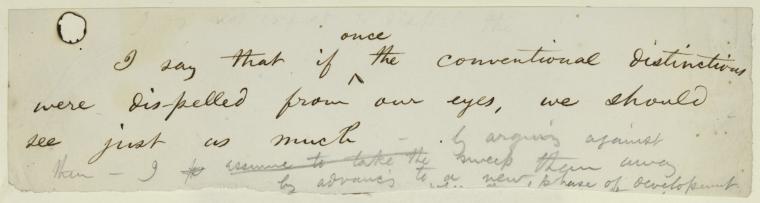 once
I say that if ^ the conventional distinctions
were dispelled from our eyes, we should
see just as much – . by arguing against
them – I assume to take the sweep them away
by advancing to a new, phase of development